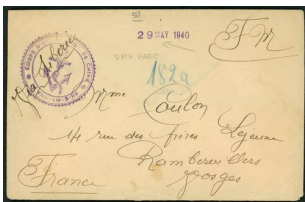 29 MAY 1940
F M
182a
Mme Coulon
14 rue des frères Lejeune
Rambervillers
Vosges
France